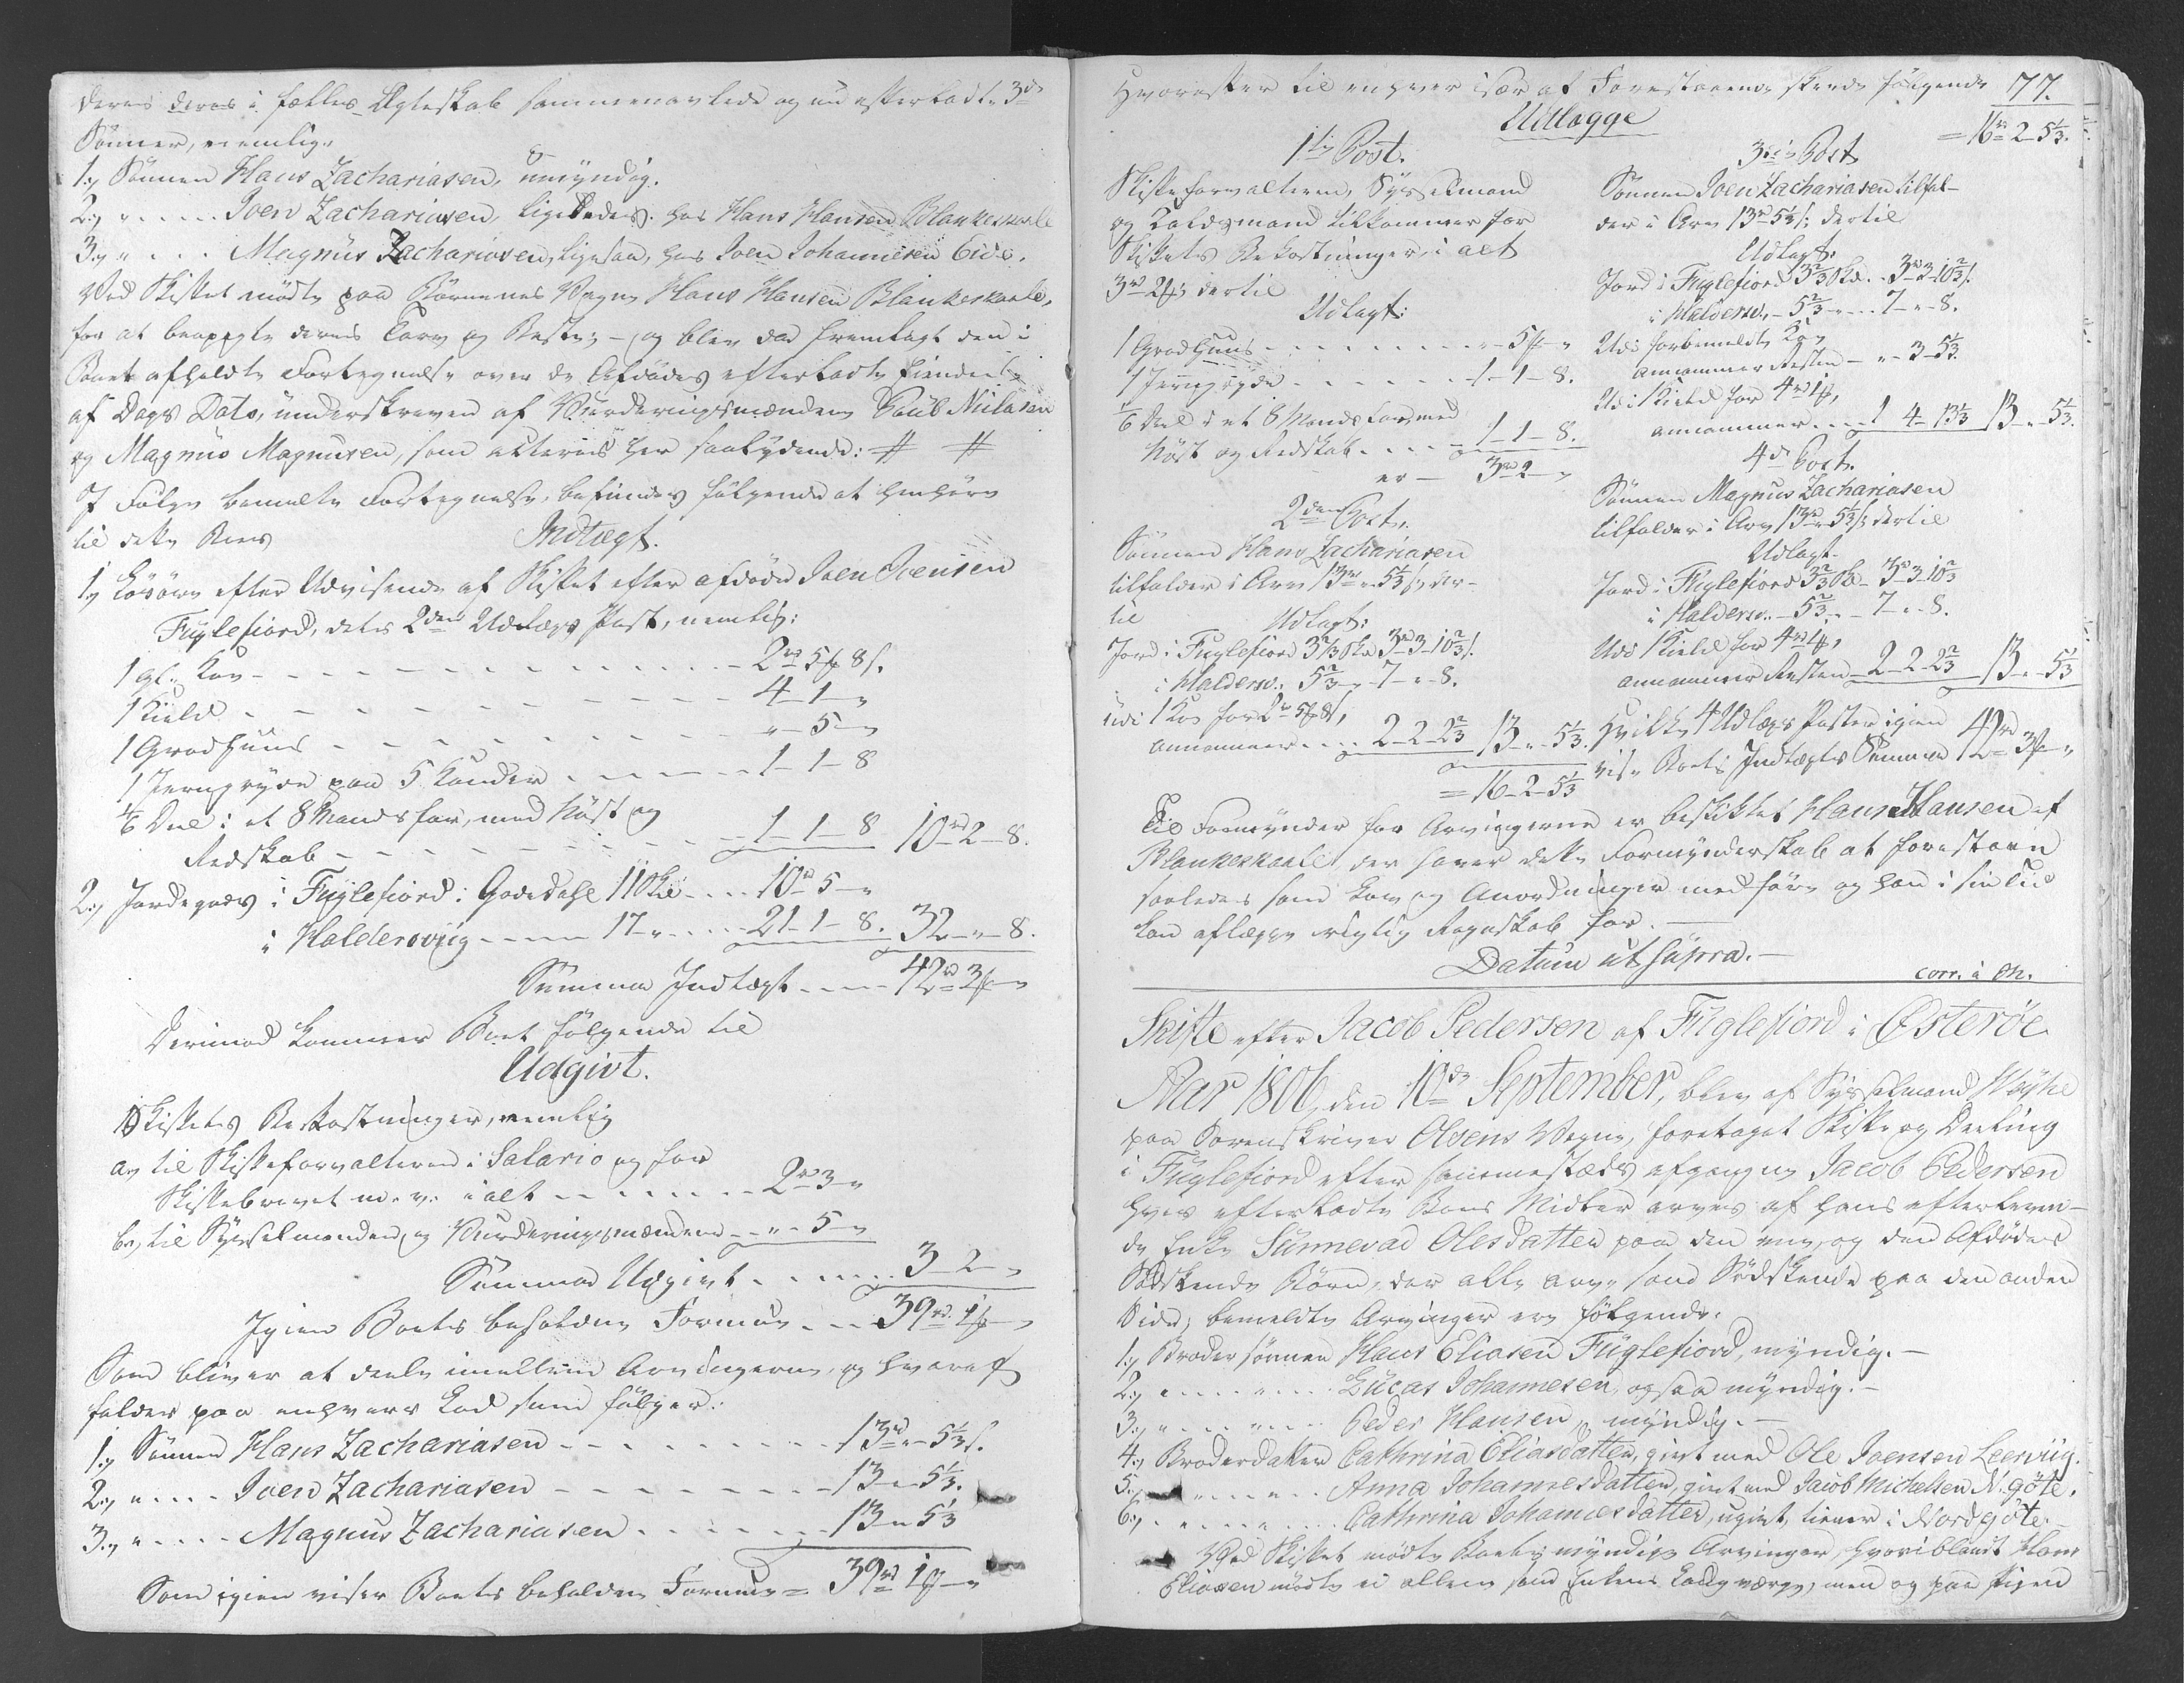 deres deres i fælles Ægteskab sammenavlede og nu efterladte 3de
Sönner, nemlig:
1., Sönnen Hans Zachariasen, umyndig.
2., " - - - Joen Zachariasen, ligeledes, hos Hans Hansen Blankeskaale
3., " - - - Magnus Zachariasen, ligesaa, hos Joen Johannesen Eide.
Ved Skiftet mödte paa Börnenes Vegne Hans Hansen Blankeskaale,
for at beagte deres Tarv og Beste; - og blev da fremlagt den i
Boet afholdte Fortegnelse over de Afdödes efterladte Eiendeele
af Dags Dato, underskreven af Vurderingsmændene Poul Nielsen
og Magnus Magnusen, som acteres her saalydende: # #
I Fölge bemelte Fortegnelse, befindes fölgende at henhöre
til dette Boes
Indtægt.
1., Lösöre efter Udvisende af Skiftet efter afdöde Joen Joensen
Fuglefiord, dets 2den Udlægs Post, nemlig:
1 gl. Koe - - - 2rd 5ß 8s.
1 Kield - - - 4 - 1 - "
1 Gradhuus - - - " - 5 - "
1 Jerngryde paa 5 Kander - - - 1 - 1 - 8
1/6 Deel i et 8 Mands far, med Nöst og
Redskab - - - 1 - 1 - 8 10rd 2 - 8.
2., Jordegods i Fuglefiord: Godedahl 11 Skd - - 10rd 5 - "
i Haldersviig - - - 17 - " - - - 21 - 1 - 8. 32 - " - 8.
Summa Indtægt - - - 42rd 3ß "
Derimod kommer Boet fölgende til
Udgivt.
Skiftets Bekostninger, nemlig
a., til Skifteforvalteren i Salario og for
Skiftebrevet m. v. i alt - - - 2rd 3 - "
b., til Sysselmanden og Vurderingsmændene - - " - 5 - "
Summa Udgivt - - - 3 - 2 - "
Igien Boets beholdne Formue - - 39rd 1ß "
Som bliver at deele imellem Arvingerne, og hvoraf
falder paa enhvers Lod som fölger:
1., Sönnen Hans Zachariasen - - - 13rd " - 5 1/3 s.
2., " - - - Joen Zachariasen - - - 13 - " - 5 1/3.
3., " - - - Magnus Zachariasen - - - 13 - " 5 1/3
Som igien viser Boets beholdne Formue = 39rd 1ß - "
77.
Hvorefter til enhver især af Forestaaende skeede fölgende
Udlægge
1ste Post.
Skifteforvalteren, Sysselmand
og Toldsmand tilkommer for
Skiftets Bekostninger, i alt
3rd 2ß; dertil
Udlagt:
1 Gradhuus - - - " - 5ß - "
1 Jerngryde - - - 1 - 1 - 8.
1/6 Deel i et 8 Mands Far, med
Nöst og Redskab - - - 1 - 1 - 8.
er - 3rd 2 - "
2den Post.
Sönnen Hans Zachariasen
tilfalder i Arv 13rd " - 5 1/3 s; der-
til
Udlagt:
Jord i Fuglefiord 3 2/3 Skd 3rd 3 - 10 2/3 s.
i Haldersv. 5 2/3 - " 7 - " - 8.
Udi 1 Koe for 2rd 5ß 8s,
annammer - - - 2 - 2 - 2 2/3 13 - " - 5 1/3.
= 16 - 2 - 5 1/3
= 16rd 2 - 5 1/3.
3die Post
Sönnen Joen Zachariasen tilfal-
der i Arv 13rd " 5 1/3 s; dertil
Udlagt:
Jord i Fuglefiord 3 2/3 Skd - 3rd 3 - 10 2/3 s.
i Haldersv. - 5 2/3 - " - - 7 - " - 8.
Udi forbemeldte Koe
annammer Resten - " - 3 - 5 1/3.
Udi 1 Kield for 4rd 1ß,
annammer - - - 1 - 4 - 13 1/3 13 - " - 5 1/3.
4de Post.
Sönnen Magnus Zachariasen
tilfalder i Arv 13rd " 5 1/3 s; dertil
Udlagt.
Jord i Fuglefiord 3 2/3 Skd - 3rd 3 - 10 2/3
i Haldersv. - 5 2/3 - " - 7 - " - 8.
Udi 1 Kield for 4rd 1ß,
annammer Resten - 2 - 2 - 2 2/3 13 - " - 5 1/3
Hvilke 4 Udlægs Poster igien
viser Boets Indtægts Summa 42rd 3ß "
Til Formynder for Arvingerne er beskikket Hans Hansen af
Blankeskaale, der haver dette Formynderskab at forestaae
saaledes som Lov og Anordninger medföre og han i sin Tid
kan aflægge rigtig Regnskab for. -
Datum ut supra. -
corr. à Oh.
Skifte efter Jacob Pedersen af Fuglefiord i Österöe
Aar 1806, den 10de September, blev af Sysselmand Weyhe
paa Sorenskriver Olsens Vegne, foretaget Skifte og Deeling
i Fuglefiord efter sammestæds afgangne Jacob Pedersen
hvis efterladte Boes Midler arves af hans efterleven-
de Enke Sunnevad Olesdatter paa den ene, og den Afdödes
Södskende Börn, der alle arve som Södskende paa den anden
Side; bemeldte Arvinger ere fölgende:
1., Brodersönnen Hans Eliasen Fuglefiord, myndig. -
2., " - - - " - - - Lucas Johannesen, ogsaa myndig. -
3., " - - - " - - - Peder Hansen, myndig. -
4., Broderdatter Cathrina Eliasdatter, givt med Ole Joensen Leerviig.
5., " - - - " - - - Anna Johannesdatter, givt med Jacob Michelsen N. göte.
6., " - - - " - - - Cathrina Johannesdatter, ugivt, tiener i Nordgöte. -
Ved Skiftet mödte Boets myndige Arvinger, hvoriblandt Hans
Eliasen mödte ei alleene som Enkens Laugværge, men og paa